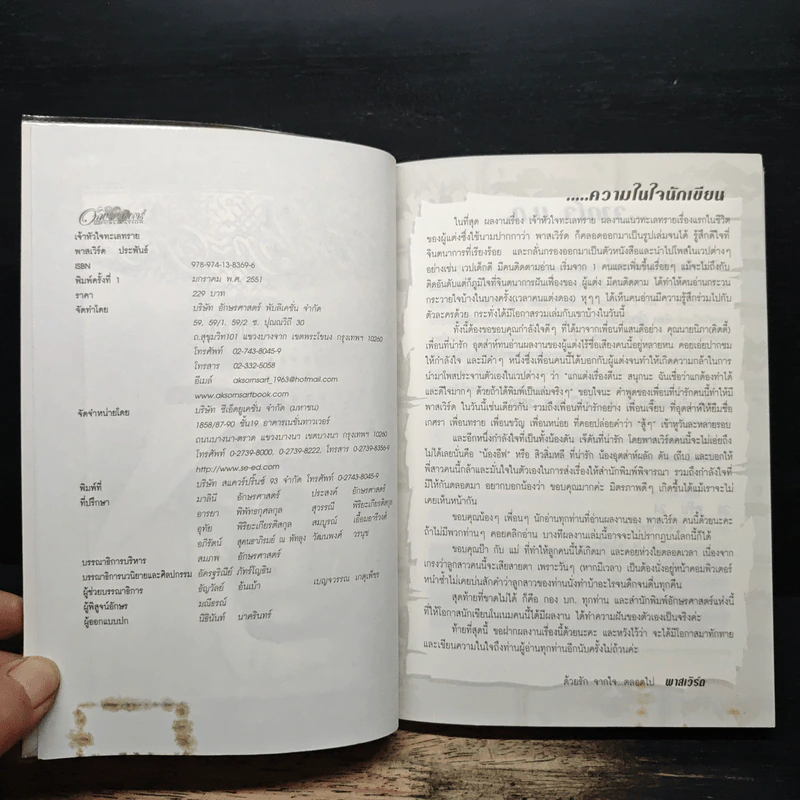 เจ้าหัวใจทะเลทราย
พาสเวิร์ด ประพันธ์
ISBN 978-974-13-8369-6
พิมพ์ครั้งที่ 1 มกราคม พ.ศ. 2551
ราคา 229 บาท
จัดทำโดย บริษัท อักษรศาสตร์ พับลิเคชั่น จำกัด
59, 59/1, 59/2 ซ. ปุณณวิถี 30
ถ.สุขุมวิท101 แขวงบางจาก เขตพระโขนง กรุงเทพฯ 10260
โทรศัพท์ 02-743-8045-9
โทรสาร 02-332-5058
อีเมล์ aksornsart_1963@hotmail.com
www.aksornsartbook.com
จัดจำหน่ายโดย บริษัท ซีเอ็ดยูเคชั่น จำกัด (มหาชน)
1858/87-90 ชั้น19 อาคารเนชั่นทาวเวอร์
ถนนบางนา-ตราด แขวงบางนา เขตบางนา กรุงเทพฯ 10260
โทรศัพท์ 0-2739-8000, 0-2739-8222, โทรสาร 0-2739-8356-9
http://www.se-ed.com
พิมพ์ที่ บริษัท สแควร์ปริ๊นซ์ 93 จำกัด โทรศัพท์ 0-2743-8045-9
ที่ปรึกษา มาลินี อักษรศาสตร์ ประสงค์ อักษรศาสตร์
อารยา พิพัทธกุศลกุล สุวรรณี พิริยะเกียรติสกุล
อุทัย พิริยะเกียรติสกุล สมบูรณ์ เอื้อมอารีวงศ์
อภิรัตน์ สุคนธาภิรมย์ ณ พัทลุง วัฒนพงศ์ วรนุช
บรรณาธิการบริหาร สมภพ อักษรศาสตร์
บรรณาธิการนวนิยายและศิลปกรรม อัครฐริณีย์ ภัทร์โญธิน
ผู้ช่วยบรรณาธิการ ธัญวัลย์ อ้นเม้า เบญจวรรณ เกตุเพ็ชร
ผู้พิสูจน์อักษร มณีอรณ์
ผู้ออกแบบปก นิธินันท์ นาครินทร์
.....ความในใจนักเขียน
ในที่สุด ผลงานเรื่อง เจ้าหัวใจทะเลทราย ผลงานแนวทะเลทรายเรื่องแรกในชีวิต
ของผู้แต่งซึ่งใช้นามปากกาว่า พาสเวิร์ด ก็คลอดออกมาเป็นรูปเล่มจนได้ รู้สึกดีใจที่
จินตนาการที่เรียงร้อย และกลั่นกรองออกมาเป็นตัวหนังสือและนำไปโพสในเวปต่างๆ
อย่างเช่น เวปเด็กดี มีคนติดตามอ่าน เริ่มจาก 1 คนและเพิ่มขึ้นเรื่อยๆ แม้จะไม่ถึงกับ
ติดอันดับแต่ก็ภูมิใจที่จินตนาการฝันเฟื่องของ ผู้แต่ง มีคนติดตาม ได้ทำให้คนอ่านกระวน
กระวายใจบ้างในบางครั้ง(เวลาคนแต่งดอง) หุๆๆ ได้เห็นคนอ่านมีความรู้สึกร่วมไปกับ
ตัวละครด้วย กระทั่งได้มีโอกาสรวมเล่มกับเขาบ้างในวันนี้
ทั้งนี้ต้องขอบคุณกำลังใจดีๆ ที่ได้มาจากเพื่อนที่แสนดีอย่าง คุณนายนิภา(คิตตี้)
เพื่อนที่น่ารัก อุตส่าห์ทนอ่านผลงานของผู้แต่งไร้ชื่อเสียงคนนี้อยู่หลายหน คอยเอ่ยปากชม
ให้กำลังใจ และมีคำๆ หนึ่งซึ่งเพื่อนคนนี้ได้บอกกับผู้แต่งจนทำให้เกิดความกล้าในการ
นำมาโพสประจานตัวเองในเวปต่างๆ ว่า "แกแต่งเรื่องดีนะ สนุกนะ ฉันเชื่อว่าแกต้องทำได้
และดีใจมากๆ ด้วยถ้าได้พิมพ์เป็นเล่มจริงๆ" ขอบใจนะ คำพูดของเพื่อนที่น่ารักคนนี้ทำให้มี
พาสเวิร์ด ในวันนี้เช่นเดียวกัน รวมถึงเพื่อนที่น่ารักอย่าง เพื่อนเจี๊ยบ ที่อุตส่าห์ให้ยืมชื่อ
เกศรา เพื่อนทราย เพื่อนขวัญ เพื่อนหน่อย ที่คอยปล่อยคำว่า "สู้ๆ" เข้าหูวันละหลายรอบ
และอีกหนึ่งกำลังใจที่เป็นทั้งน้องต้น เจ๊ดันที่น่ารัก โดยพาสเวิร์ดคนนี้จะไม่เอ่ยถึง
ไม่ได้เลยนั่นคือ "น้องอีฟ" หรือ สิวลีมหลี ที่น่ารัก น้องอุตส่าห์ผลัก ดัน (ถีบ) และบอกให้
พี่สาวคนนี้กล้าและมั่นใจในตัวเองในการส่งเรื่องให้สำนักพิมพ์พิจารณา รวมถึงกำลังใจที่
มีให้กันตลอดมา อยากบอกน้องว่า ขอบคุณมากค่ะ มิตรภาพดีๆ เกิดขึ้นได้แม้เราจะไม่
เคยเห็นหน้ากัน
ขอบคุณน้องๆ เพื่อนๆ นักอ่านทุกท่านที่อ่านผลงานของ พาสเวิร์ด คนนี้ด้วยนะคะ
ถ้าไม่มีพวกท่านๆ คอยคลิกอ่าน บางทีผลงานเล่มนี้อาจจะไม่ปรากฏบนโลกนี้ก็ได้
ขอบคุณป๊า กับ แม่ ที่ทำให้ลูกคนนี้ได้เกิดมา และคอยห่วงใยตลอดเวลา เนื่องจาก
เกรงว่าลูกสาวคนนี้จะเสียสายตา เพราะวันๆ (หากมีเวลา) เป็นต้องนั่งอยู่หน้าคอมพิวเตอร์
หน้าซ้ำไม่เคยบ่นสักคำว่าลูกสาวของท่านนั่งทำบ้าอะไรจนดึกจนดื่นทุกคืน
สุดท้ายที่ขาดไม่ได้ ก็คือ กอง บก. ทุกท่าน และสำนักพิมพ์อักษรศาสตร์แห่งนี้
ที่ให้โอกาสนักเขียนในเนมคนนี้ได้มีผลงาน ได้ทำความฝันของตัวเองเป็นจริงค่ะ
ท้ายที่สุดนี้ ขอฝากผลงานเรื่องนี้ด้วยนะคะ และหวังไว้ว่า จะได้มีโอกาสมาทักทาย
และเขียนความในใจถึงท่านผู้อ่านทุกท่านอีกนับครั้งไม่ถ้วนค่ะ
ด้วยรัก จากใจ ตลอดไป พาสเวิร์ด